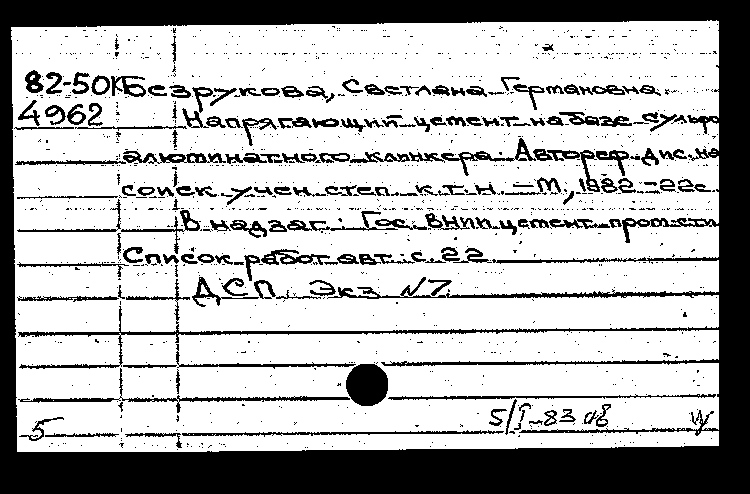 82-50К Безрукова, Светлана Германовна.
4962 Напрягающий цемент на базе сульфо
алюминатного клинкера: Автореф. дис. на
соиск. учен. степ. к.т.н. – М., 1982 – 22с
В надзаг.: Гос. ВНИИ цемент. пром-сти
Список работ авт.: с. 22
ДСП. Экз. N7.
5/I-83
5